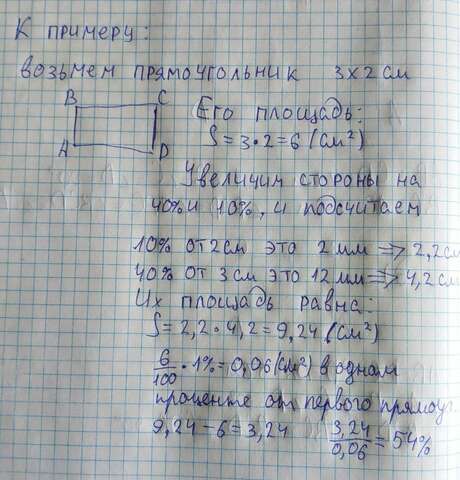 К примеру:
возьмем прямоугольник 3х2 см
B C
A D
Его площадь:
S = 3·2=6 (см²)
Увеличим стороны на
40% и 10%, и подсчитаем
10% от 2см это 2 мм => 2,2см
40% от 3 см это 12 мм => 4,2см
Их площадь равна:
S = 2,2·4,2=9,24 (см²)
6/100 · 1% = 0,06(см²) в одном
проценте от первого прямоуг.
9,24-6=3,24 3,24/0,06 = 54%